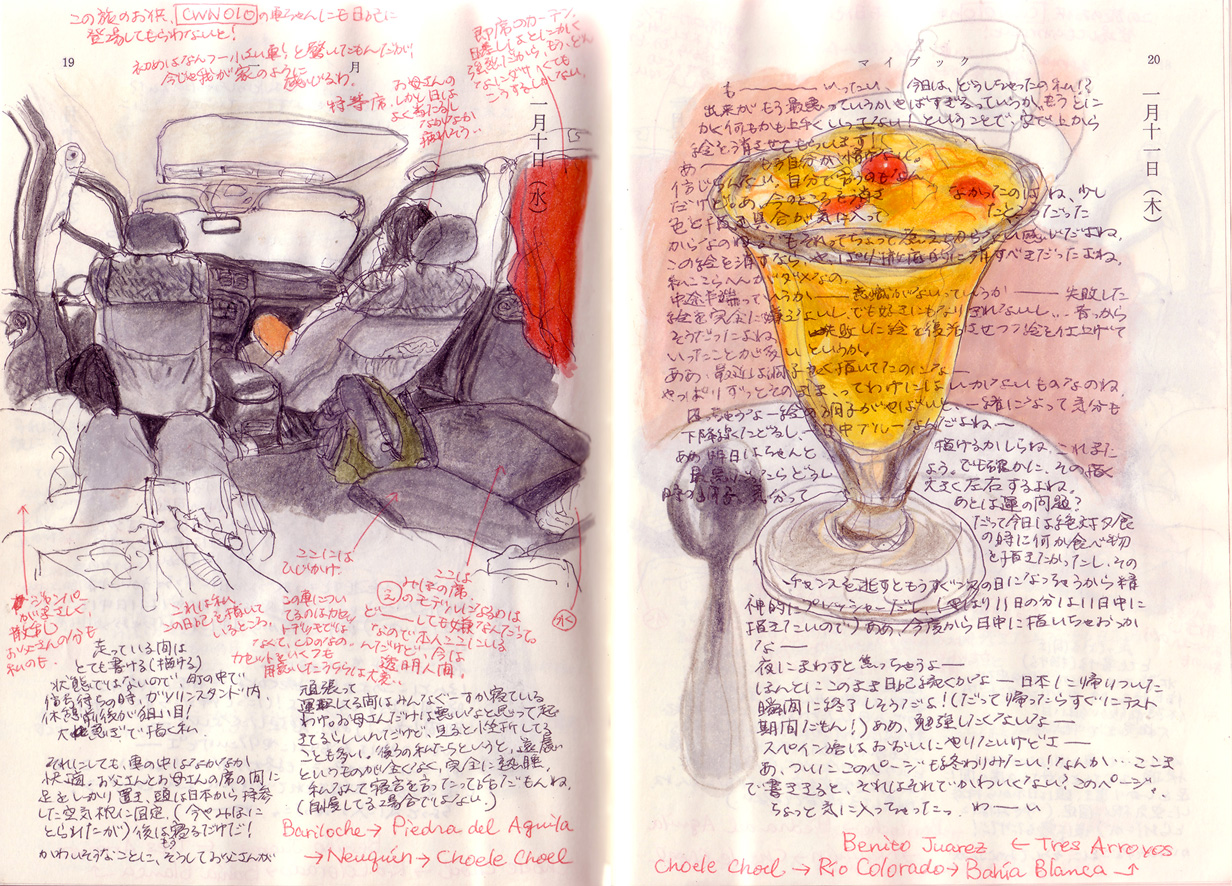 この旅のお供、CWN010の車ちゃんにも日記に
登場してもらわないと!
初めはなんつー小さい車!と驚いたもんだが、
今じゃ我が家のように
感じるわ。
お母さんの
特等席。しかし日は
よく当たるし
なかなか
疲れそう..
即席のカーテン。
日差しはとにかく
強烈だから、もう、どん
なにダサくても
こうするしかない。
19
一月
一月十日(水)
ここには
ひじかけ。
ジャンパー
がまさしく
散乱
お父さんの分も
私のも。
これは私、
この日記を描いて
いるところ。
この車につい
てるのはカセッ
トデッキでは
なくて、CDなの。
カセットをいくつも
用意したうちらは大変..
ここは
みほの席。
絵のモデルになるのは
どーしても嫌なんだって。
なので本人ココにいる
んだけど、今は
透明人間。
走っている間は
とても書ける(描ける)
状態ではないので、町の中で
信号待ちの時、ガソリンスタンド内
休憩前後が狙い目!
大急ぎで描く私。
それにしても、車の中はなかなか
快適。お父さんとお母さんの席の間に
足をしっかり置き、頭は日本から持参
した空気枕に固定。(今やみほに
とられたが)後は寝るだけだ!
かわいそうなことに、そうしてお父さんが
頑張って
運転してる間はみんなぐーすか寝ている
わけ。お母さんだけは悪いなと思って起
きてるらしいんだけど、見ると小笠折してる
ことも多い。後ろの私たちというと、遠慮
というものが全くなく、完全に熟睡。
私なんて寝言を言ったっておかしくだもんね。
(自慢してる場合ではない)
Bariloche→ Piedra del Aguila
→Neuquén→ Choele Choel
マイブック
20
一月十一日(木)
も――― いったい 今日は、どうしちゃったの私!?
出来がもう最悪っていうかやばすぎるっていうか、もうとに
かく何もかも上手くいってない!ということで、字で上から
絵を消させてもらいます!
あー もう自分が情けない。
信じらんない。自分で言うのもなん
なかったのはね、少し
色と
気に入って
からなのね。
この絵を消すなら、やっぱり徹底的に消すべきだったよね。
私ここらへんがダメなの。
中途半端っていうか―― 意識がないっていうか ―― 失敗した
絵を完全に嫌えないし、でも好きにもなりきれないし.. 昔っから
そうだったよね。失敗した絵を復活させつつ絵を仕上げて
いったことが多い、というか。
ああ、最近は調子良く描いてたのにな―
やっぱりずっとそのままってわけにはいかないものなのね。
困っちゃうな―絵の調子がやばいと、一緒になって気分も
下降線たどるし、一日中ブルーなんだよね―
あぁ明日はちゃんと描けるかしらね、これまた
最悪だったらどうしよう。でも確かに、その描く
時の 気分って大きく左右するよね。
あとは運の問題?
だって今日は絶対夕食
の時に何か食べ物
を描きたかったし、その
チャンスを逃すともうすぐ次の日になっちゃうから精
神的にプレッシャーだし。(やはり11日の分は11日中に
描きたいので)ああ、今度から日中に描いちゃおっか
な―
夜にまわすと焦っちゃうよ―
ほんとにこのまま日記続くかな― 日本に帰りついた
瞬間に終了しそうだよ!(だって帰ったらすぐにテスト
期間だもん!)ああ、勉強したくないな―
スペイン語はおおいにやりたいけどエ―
あ、ついにこのページも終わりみたい!なんか… ここま
で書ききると、それはそれでかわいくない?このページ。
ちょっと気に入っちゃったっ。 わ―い
Benito Juarez ← Tres Arroyos
Choele Choel → Río Colorado→ Bahía Blanca